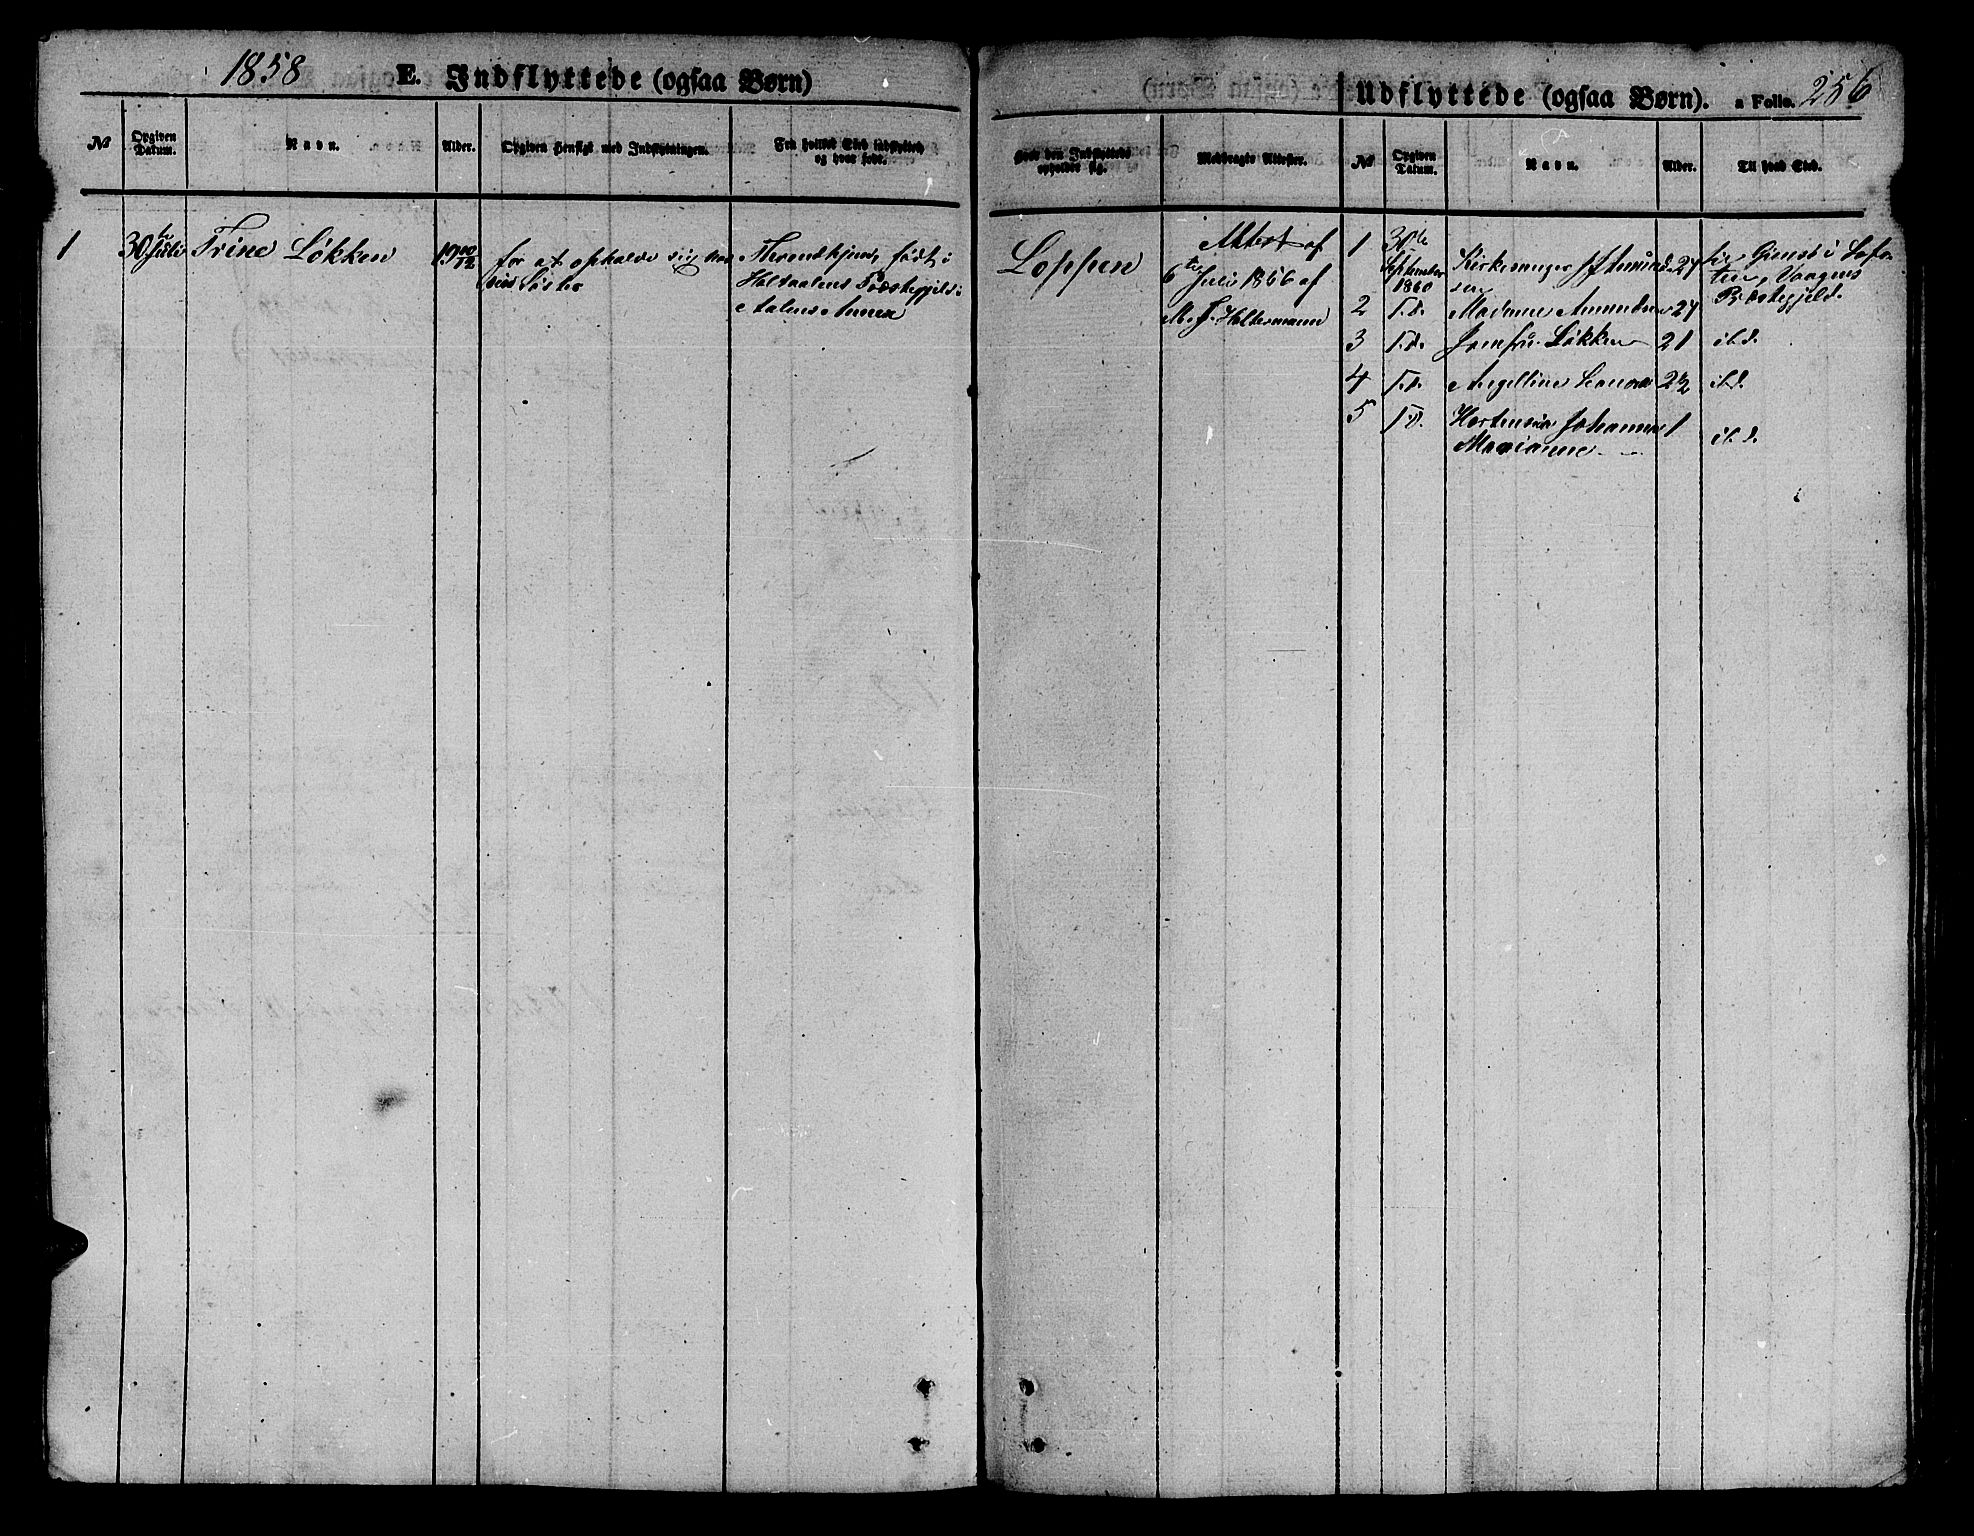 1858
E. Indflyttede (ogsaa Børn)
№
Opgiven Datum.
Navn.
Alder.
Opgiven Hensigt med Indflytningen.
Fra hvilket Sted indflyttet og hvor født.
1
30te Juli
Trine Løkken
19 10/12
for at opholde sig hos
sin Søster
Throndhjem, født i
Holtaalens Præstegjeld
Aalens Annex
Udflyttede (ogsaa Børn).
a Folio. 256
Hvor den Indflyttede opholder sig.
Medbragte Attester.
№
Opgiven Datum.
Navn.
Alder.
Til hvad Sted.
Loppen
Attest af
6te Juli 1856 af
M. J. Holtermann
1
30te
September
1860
Kirkesanger J Amund
sen
27
Gimsø i Lofo
ten, Vaagens
Præstegjeld.
2
I.d.
Madame Amundsen
27
3
I.d.
Jomfru Løkken
21
ibd.
4
I.d.
Angelline Leonora
2½
ibd.
5
I.d.
Hortensia Johanna
Marianne
1
ibd.